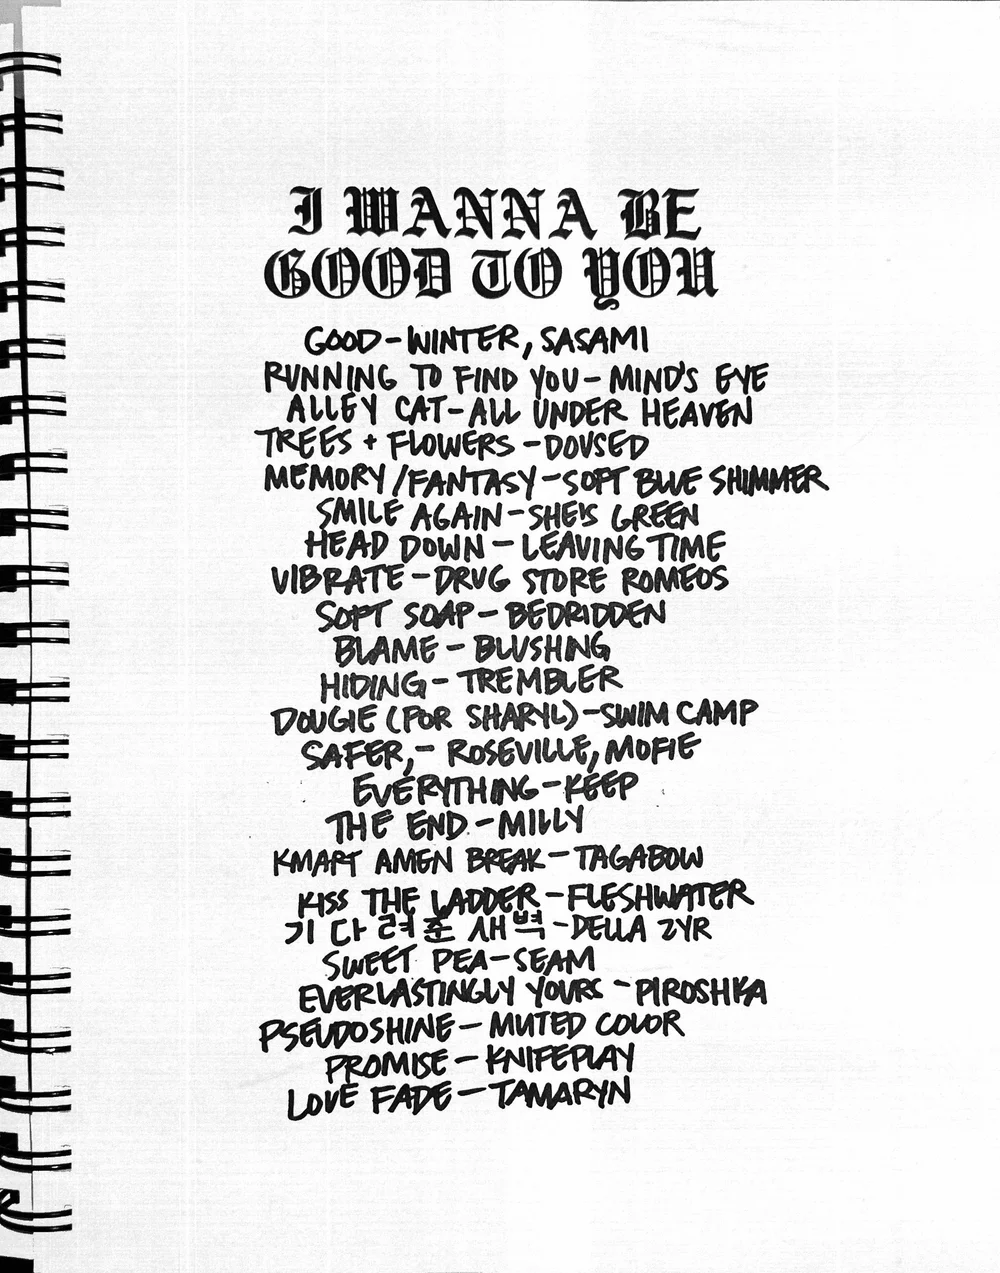 I WANNA BE
GOOD TO YOU
GOOD - WINTER, SASAMI
RUNNING TO FIND YOU - MIND'S EYE
ALLEY CAT - ALL UNDER HEAVEN
TREES + FLOWERS - DOUSED
MEMORY/FANTASY - SOFT BLUE SHIMMER
SMILE AGAIN - SHE'S GREEN
HEAD DOWN - LEAVING TIME
VIBRATE - DRUG STORE ROMEOS
SOFT SOAP - BEDRIDDEN
BLAME - BLUSHING
HIDING - TREMBLER
DOUGIE (FOR SHARYL) - SWIM CAMP
SAFER, - ROSEVILLE, MOFIE
EVERYTHING - KEEP
THE END - MILLY
KMART AMEN BREAK - TAGABOW
KISS THE LADDER - FLESHWATER
기다려준 새벽 - DELLA ZYR
SWEET PEA - SEAM
EVERLASTINGLY YOURS - PIROSHKA
PSEUDOSHINE - MUTED COLOR
PROMISE - KNIFEPLAY
LOVE FADE - TAMARYN